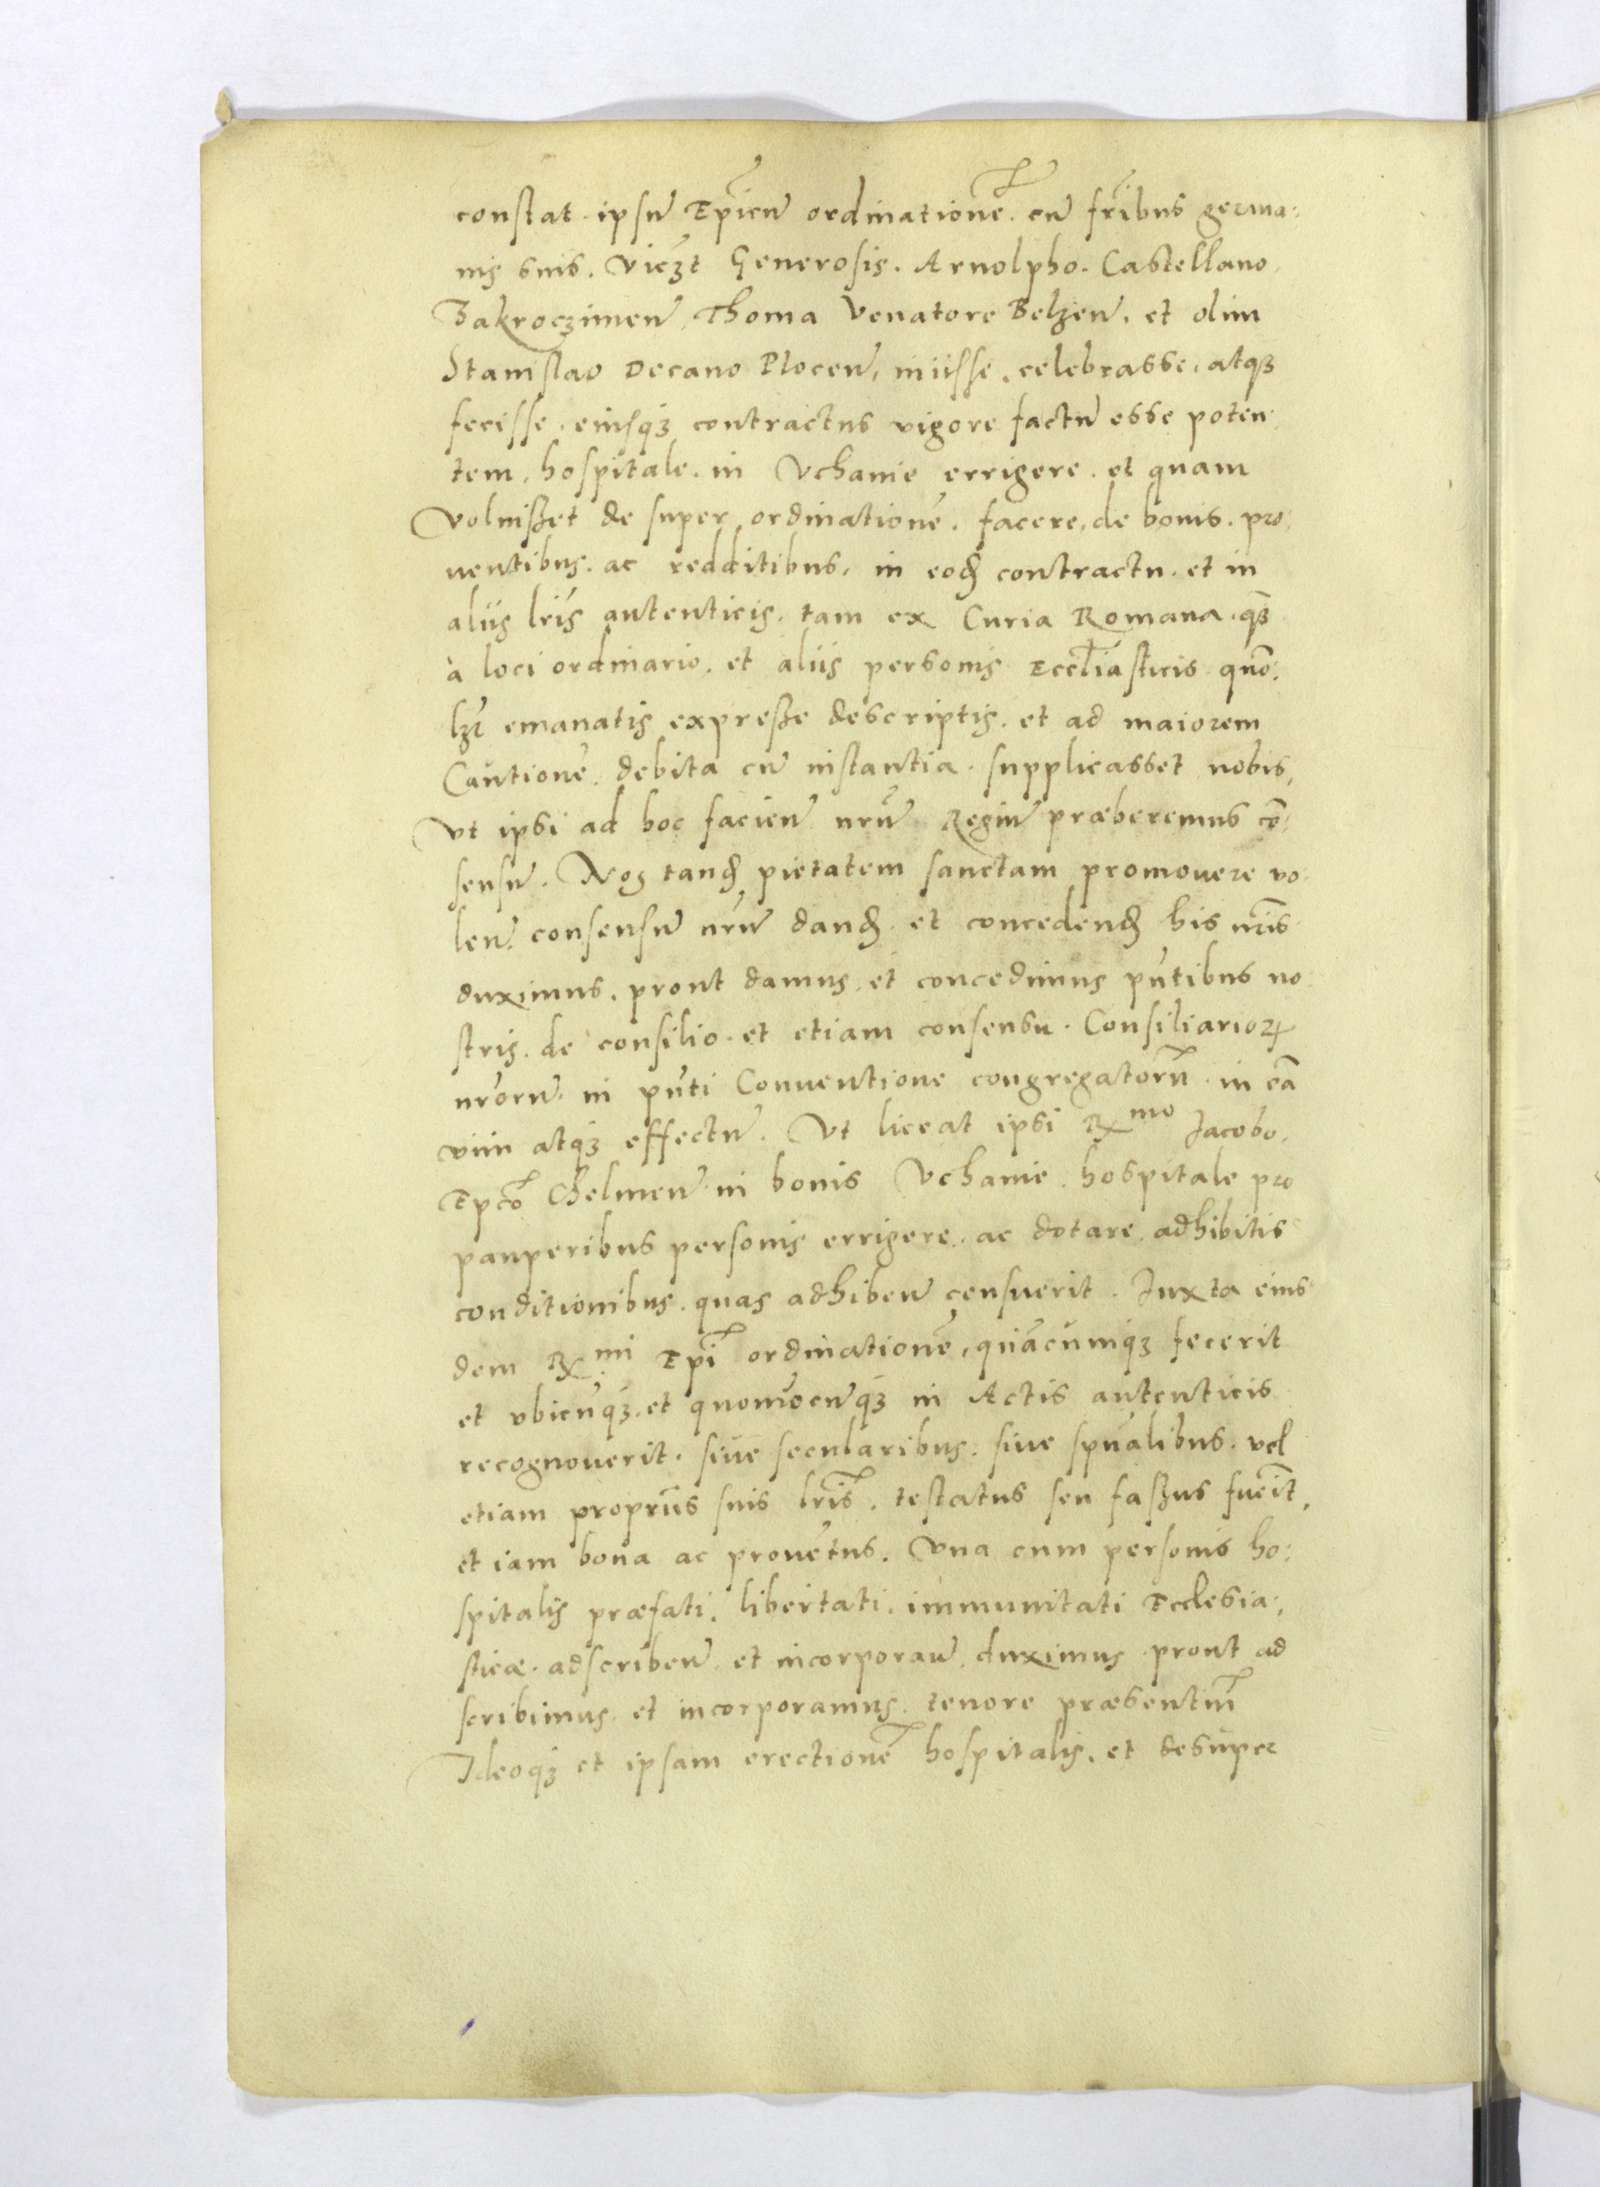 constat. ipsū Epīcū ordinationē. cū frībus germa:
nis suis. viczt Generosis. Arnolpho. Castellano
Zakroczimen̄, Thoma Venatore Belzen̄. et olim
Stanislao Decano Plocen̄, iniisse, celebrasse, atqꝫ
fecisse. eiusqꝫ contractus vigore factū esse poten
tem, hospitale. in Vchanie errigere. et quam
voluisset de super ordinationē. facere, de bonis. pro:
uentibus. ac redditibus, in eod̄ contractu. et in
aliis lrīs autenticis. tam ex Curia Romana. qꝫ
à loci ordinario. et aliis personis Eccl̄iasticis quō:
lꝫr emanatis expresse descriptis. et ad maiorem
Cautionē. debita cū instantia. supplicasset nobis,
vt ipsi ad hoc facien̄ nrū Regiū præberemus cō:
sensū. Nos tand̄ pietatem sanctam promouere vo
len̄. consensū nrū dand̄ et concedend̄ his nrīs
duximus, prout damus. et concedimus pn̄tibus no
stris. de consilio. et etiam consensu. Consiliarioꝝ
nrorū. in pn̄ti Conuentione congregatorū. in eā
vim atqꝫ effectū. Vt liceat ipsi Rx^mo Jacobo.
Epcō Chelmen̄ in bonis Vchanie. hospitale pro
pauperibus personis errigere. ac dotare adhibitis
conditionibus. quas adhiben̄ censuerit. Juxta eius
dem Rx^mi Epī ordinationē, quācumqꝫ fecerit
et vbicūqꝫ. et quomōcūqꝫ in Actis autenticis
recognouerit. siue secularibus. siue spūalibus. vel
etiam propriis suis lrīs. testatus seu fassus fuerīt,
et iam bona ac prouētus. Vna cum personis ho:
spitalis præfati. libertati. immunitati Ecclesia:
sticæ. adscriben̄. et incorporan̄. duximus. prout ad
scribimus. et incorporamus. tenore præsentiū
Ideoqꝫ et ipsam erectionē hospitalis. et desuper